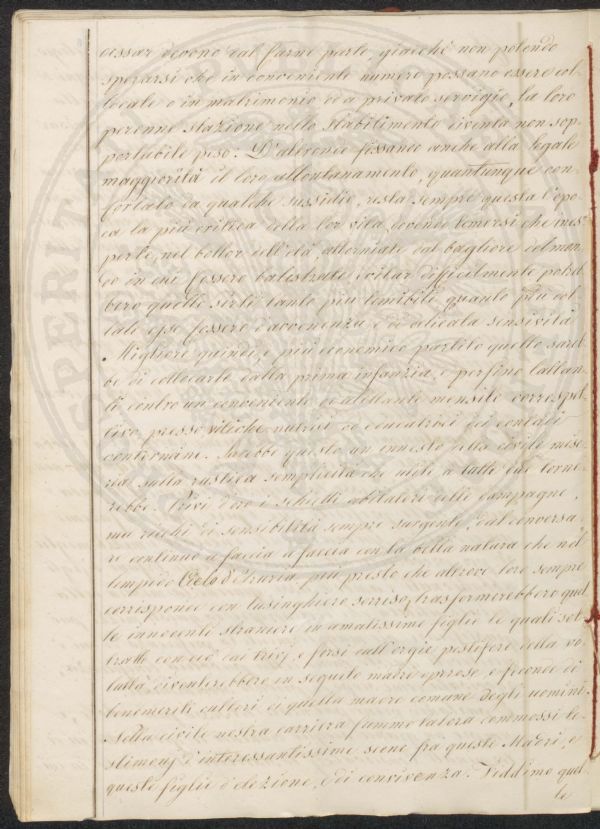 cessar devono dal farne parte, giacchè non potendo
sperarsi che in conveniente numero possano essere col-
locate o in matrimonio od a privato servigio, la loro
perenne stazione nello stabilimento diventa non sop-
portabile peso. D'altronde fissando anche alla legale
maggiorità il loro allontanamento, quantunque con-
fortato da qualche sussidio, resta sempre questa l'epo-
ca la più critica della lor vita, dovendo temersi che ines-
perte, nel bollor dell'età, attorniate dal bagliore del mon-
do in cui fossero balestrate, evitar difficilmente potreb-
bero quelle sirti tanto più temibili, quanto più do-
tate esse fossero d'avvenenza, e di delicata sensività
Migliore quindi, e più economico partito quello sareb-
be di collocarle dalla prima infanzia, e perfino lattan-
ti contro un conveniente ed allettante mensile corrispet-
tivo presso villiche nutrici ed educatrici dei contadi
contermini. Sarebbe questo un innesto della civile mise-
ria sulla rustica semplicità che utile a tutte due torne-
rebbe. Privi d'oro i schietti abitatori delle campagne,
ma ricchi di sensibilità sempre sorgente, dal conversa-
re continuo a faccia a faccia con la bella natura che nel
limpido Cielo d'Etruria più presto che altrove loro sempre
corrisponde con lusinghiero sorriso, trasformerebbero quel-
le innocenti straniere in amatissime figlie le quali sot-
tratte con ciò dai trivj e forsi dall'orgie pestifere della vo-
luttà, diventerebbero in seguito madri operose, e feconde di
benemeriti cultori di quella madre comune degli uomini.
Nella civile nostra carriera fummo talora commossi te-
stimonj d'interessantissime scene fra queste Madri, e
queste figlie d'elezione, e di convivenza. Veddimo quel-
le